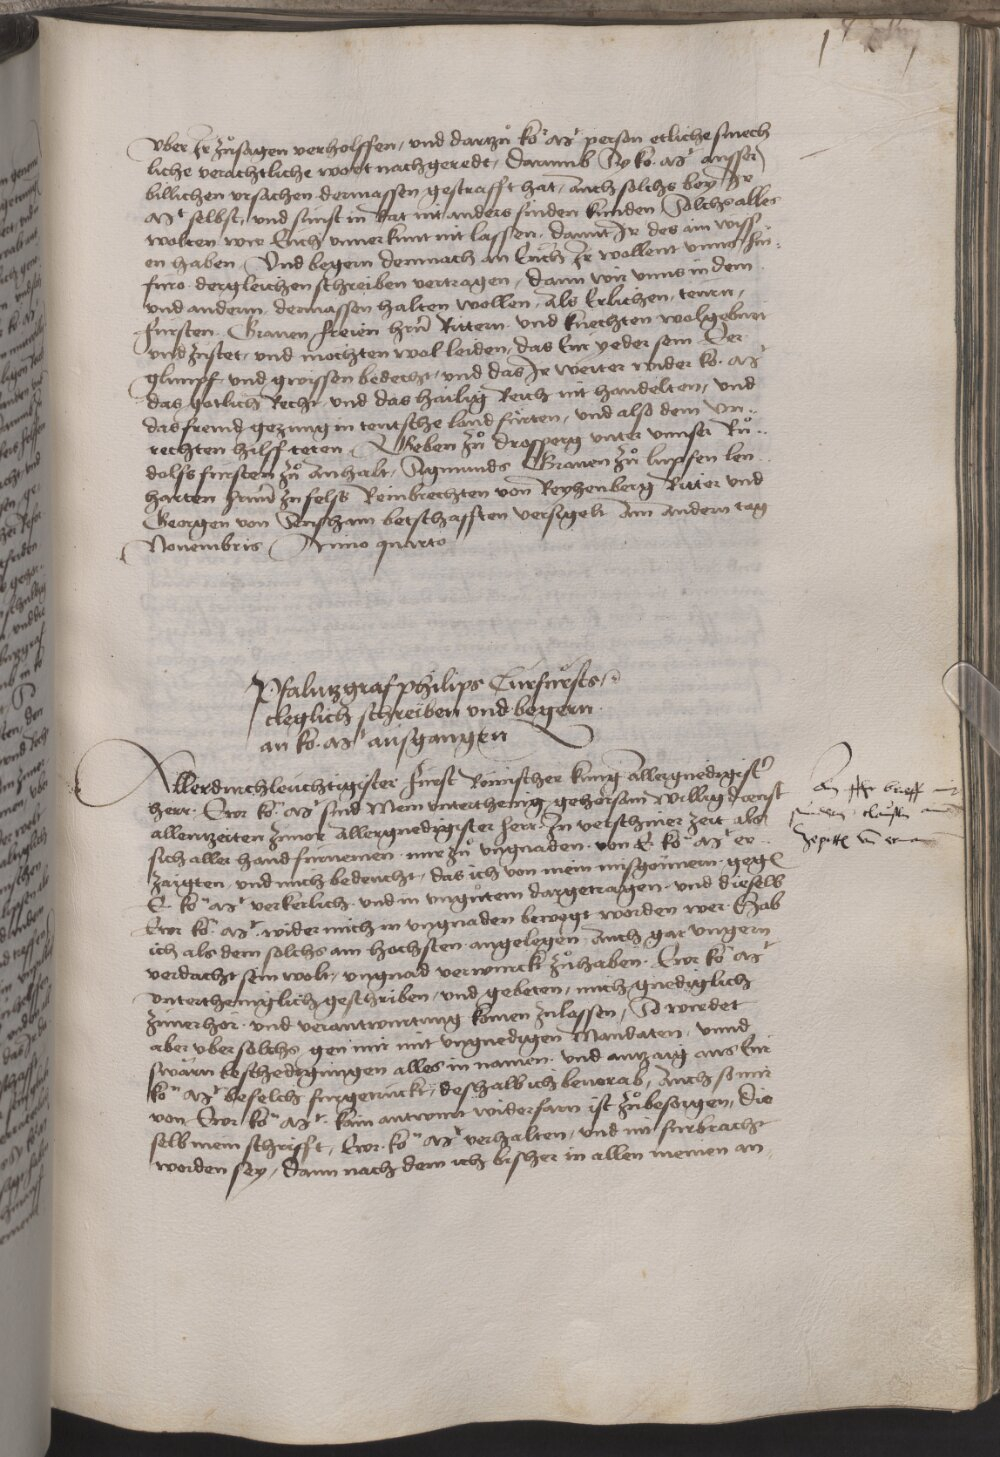 vber Ir zůsagen verholffen, vnd dartzů ko. Mt. person etliche smech
liche verachtliche wort nachgeredt, darumb Sy ko. Mt. ausser
billichen vrsachen dermassen gestrafft hat, auch solchs bey Ir
Mt. selbst, vnd sunst in tat nit anders finden kunden Solchs alles
wolten wir Euch vnnerkunt nit lassen. damit Ir des ain wiss
en haben. Vnd begern demnach an Euch Ir wollent vnns hin:
furo dergleichen schreiben vertragen, dann wir vnns in dem
vnd anderm, dermassen halten wollen, als Erlichen, teurn,
fursten. Grauen freien hrn Rittern vnd knechten wolgebürt
vnd zustet, vnd mochten wol leiden, das Eur yeder sein Eer
glimpf vnd gwissen bedecht, vnd das Ir weiter wider ko. Mt
das gotlich Recht vnd das hailig Reich nit handelten, vnd
das fremd gezung in teutsche land fürten, vnd also dem vn..
rechten hilff teten. Geben zů drosperg vnter vnnser Rů..
dolfs fursten zů Anhalt, Sigmunds Grauen zů lupfen len
harten hrnn zu fels Reinbrechten von Reyhenberg Ritter vnd
Georgen von Senshaim betschafften versigelt Am andern tag
Nouembris Anno quarto
Pfaltzgraf philips Curfürsts,
cleglich schreiben vnd begern
an ko. Mt. ausgangen
Allerdurchleuchtigister fürst Römischer kunig Allergnedigister
herr. Ewr ko. Mt. sind Mein vnterthenig gehorsam willig dienst
allentzeiten zuuor Allergnedigister herr. In verschiner zeit als
sich aller hand furnemen mir zů vngnaden von E. ko. Mt. er..
zaigten, vnd mich bedeucht, das ich von mein misgönnern gegen
E. ko. Mt. verkerlich vnd in vngůtem dargetragen vnd dieselb
Ewr ko. Mt. wider mich in vngnaden bewegt worden wer. Hab
ich als dem solchs am hochsten angelegen, Auch gar vngern
verdacht sein wolt, vngnad verwirckt zů haben. Ewr ko. Mt
vntertheniglich geschriben, vnd gebeten, mich gnediglich
zuuerhör vnd verantwurtung komen zulassen, So wurdet
aber vber solchs gen mir mit vngnedigen Mandaten, vnnd
swärn beschedigungen alles in namen vnd antzaig aus Eur
ko. Mt. beuelch furgeruckt, deshalb ich beuorab, Auch so mir
von Ewr ko. Mt. kain antwurt widerfarn ist zůbesorgen, die
selb mein schrifft, Ewr. ko. Mt. verhalten, vnd nit furbracht
worden sey, dann nach dem ich bisher in allen meinen an,